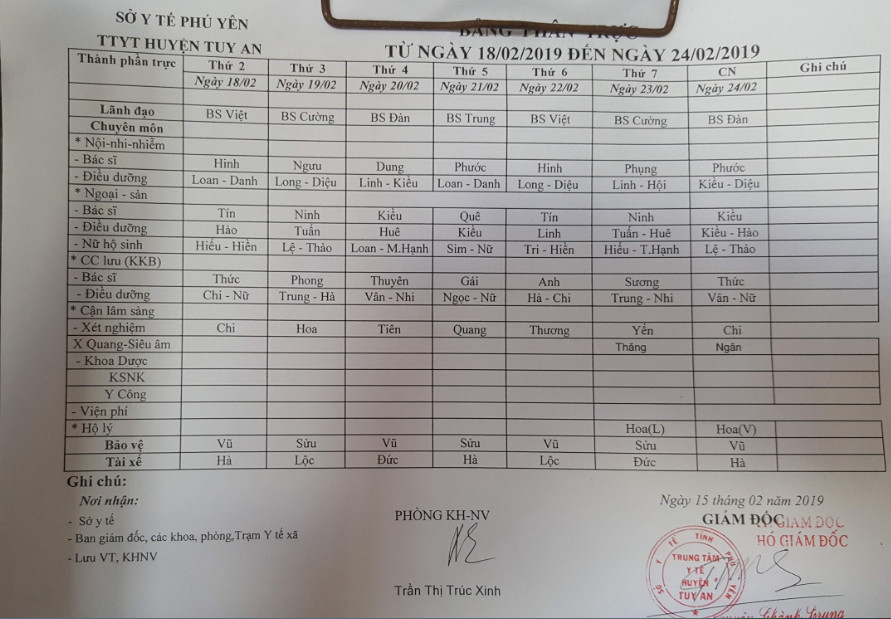 SỞ Y TẾ PHÚ YÊN
TTYT HUYỆN TUY AN
BẢNG PHÂN TRỰC
TỪ NGÀY 18/02/2019 ĐẾN NGÀY 24/02/2019
Thành phần trực Thứ 2 Thứ 3 Thứ 4 Thứ 5 Thứ 6 Thứ 7 CN Ghi chú
Ngày 18/02 Ngày 19/02 Ngày 20/02 Ngày 21/02 Ngày 22/02 Ngày 23/02 Ngày 24/02
Lãnh đạo BS Việt BS Cường BS Đàn BS Trung BS Việt BS Cường BS Đàn
Chuyên môn
* Nội-nhi-nhiễm
- Bác sĩ Hinh Ngưu Dung Phước Hinh Phụng Phước
- Điều dưỡng Loan - Danh Long - Diệu Linh - Kiều Loan - Danh Long - Diệu Linh - Hội Kiều - Diệu
* Ngoại - sản
- Bác sĩ Tín Ninh Kiều Quê Tín Ninh Kiều
- Điều dưỡng Hào Tuấn Huê Kiều Linh Tuấn - Huê Kiều - Hào
- Nữ hộ sinh Hiếu - Hiền Lệ - Thảo Loan - M.Hạnh Sim - Nữ Tri - Hiền Hiếu - T.Hạnh Lệ - Thảo
* CC lưu (KKB)
- Bác sĩ Thức Phong Thuyên Gái Anh Sương Thức
- Điều dưỡng Chi - Nữ Trung - Hà Vân - Nhi Ngọc - Nữ Hà - Chi Trung - Nhi Vân - Nữ
* Cận lâm sàng
- Xét nghiệm Chi Hoa Tiên Quang Thương Yến Chi
X Quang-Siêu âm Thăng Ngân
- Khoa Dược
KSNK
Y Công
- Viện phí
* Hộ lý Hoa(L) Hoa(V)
Bảo vệ Vũ Sửu Vũ Sửu Vũ Sửu Vũ
Tài xế Hà Lộc Đức Hà Lộc Đức Hà
Ghi chú:
Nơi nhận:
- Sở y tế
- Ban giám đốc, các khoa, phòng,Trạm Y tế xã
- Lưu VT, KHNV
PHÒNG KH-NV
Trần Thị Trúc Xinh
Ngày 15 tháng 02 năm 2019
GIÁM ĐỐC
GIAM ĐỌC
HÓ GIÁM ĐỐC
SỞ Y TẾ TỈNH PHÚ YÊN
TRUNG TÂM
Y TẾ
HUYỆN
TUY AN
Thành Trung